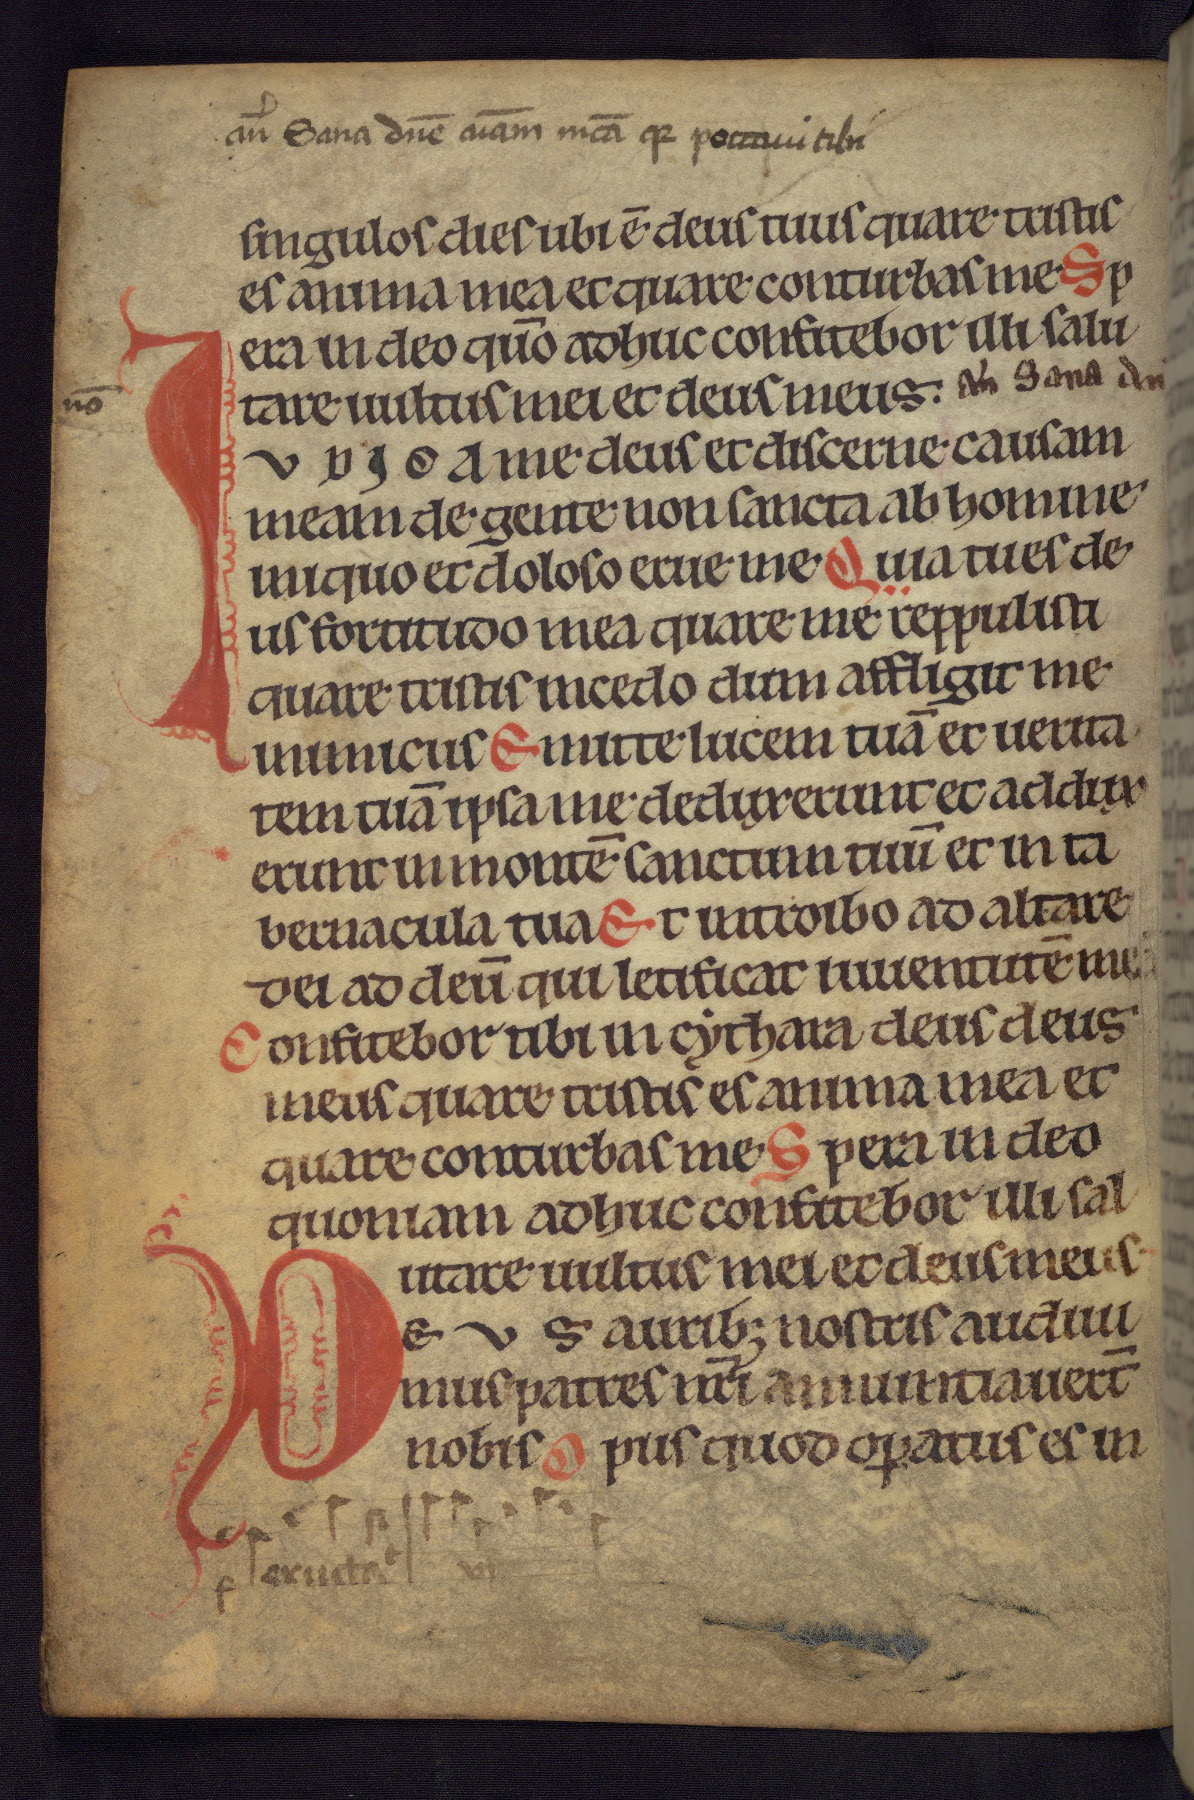 an̄ Sana dn̄e aīam mēa qr peccaui tibi
singulos dies ubi ē deus tuus quare tristis
es anima mea et quare conturbas me Sp
era in deo qūo adhuc confitebor illi salu
tare uultus mei et deus meus. an̄ Sana dn
nō
IVDICA me deus et discerne causam
meam de gente non sancta ab homine
iniquo et doloso erue me Quia tu es de
us fortitudo mea quare me reppulisti
quare tristis incedo dum affligit me
inimicus Emitte lucem tuā et uerita
tem tuā ipsa me deduxerunt et addux
erunt in montē sanctum tuū et in ta
bernacula tua Et introibo ad altare
dei ad deū qui letificat iuuentutē me
Confitebor tibi in cẏthara deus deus
meus quare tristis es anima mea et
quare conturbas me Spera in deo
quoniam adhuc confitebor illi sal
utare uultus mei et deus meus
DEVS auribꝫ nostris audiui
mus patres nr̄i annuntiauert̄
nobis Opus quod oꝑatus es in
f